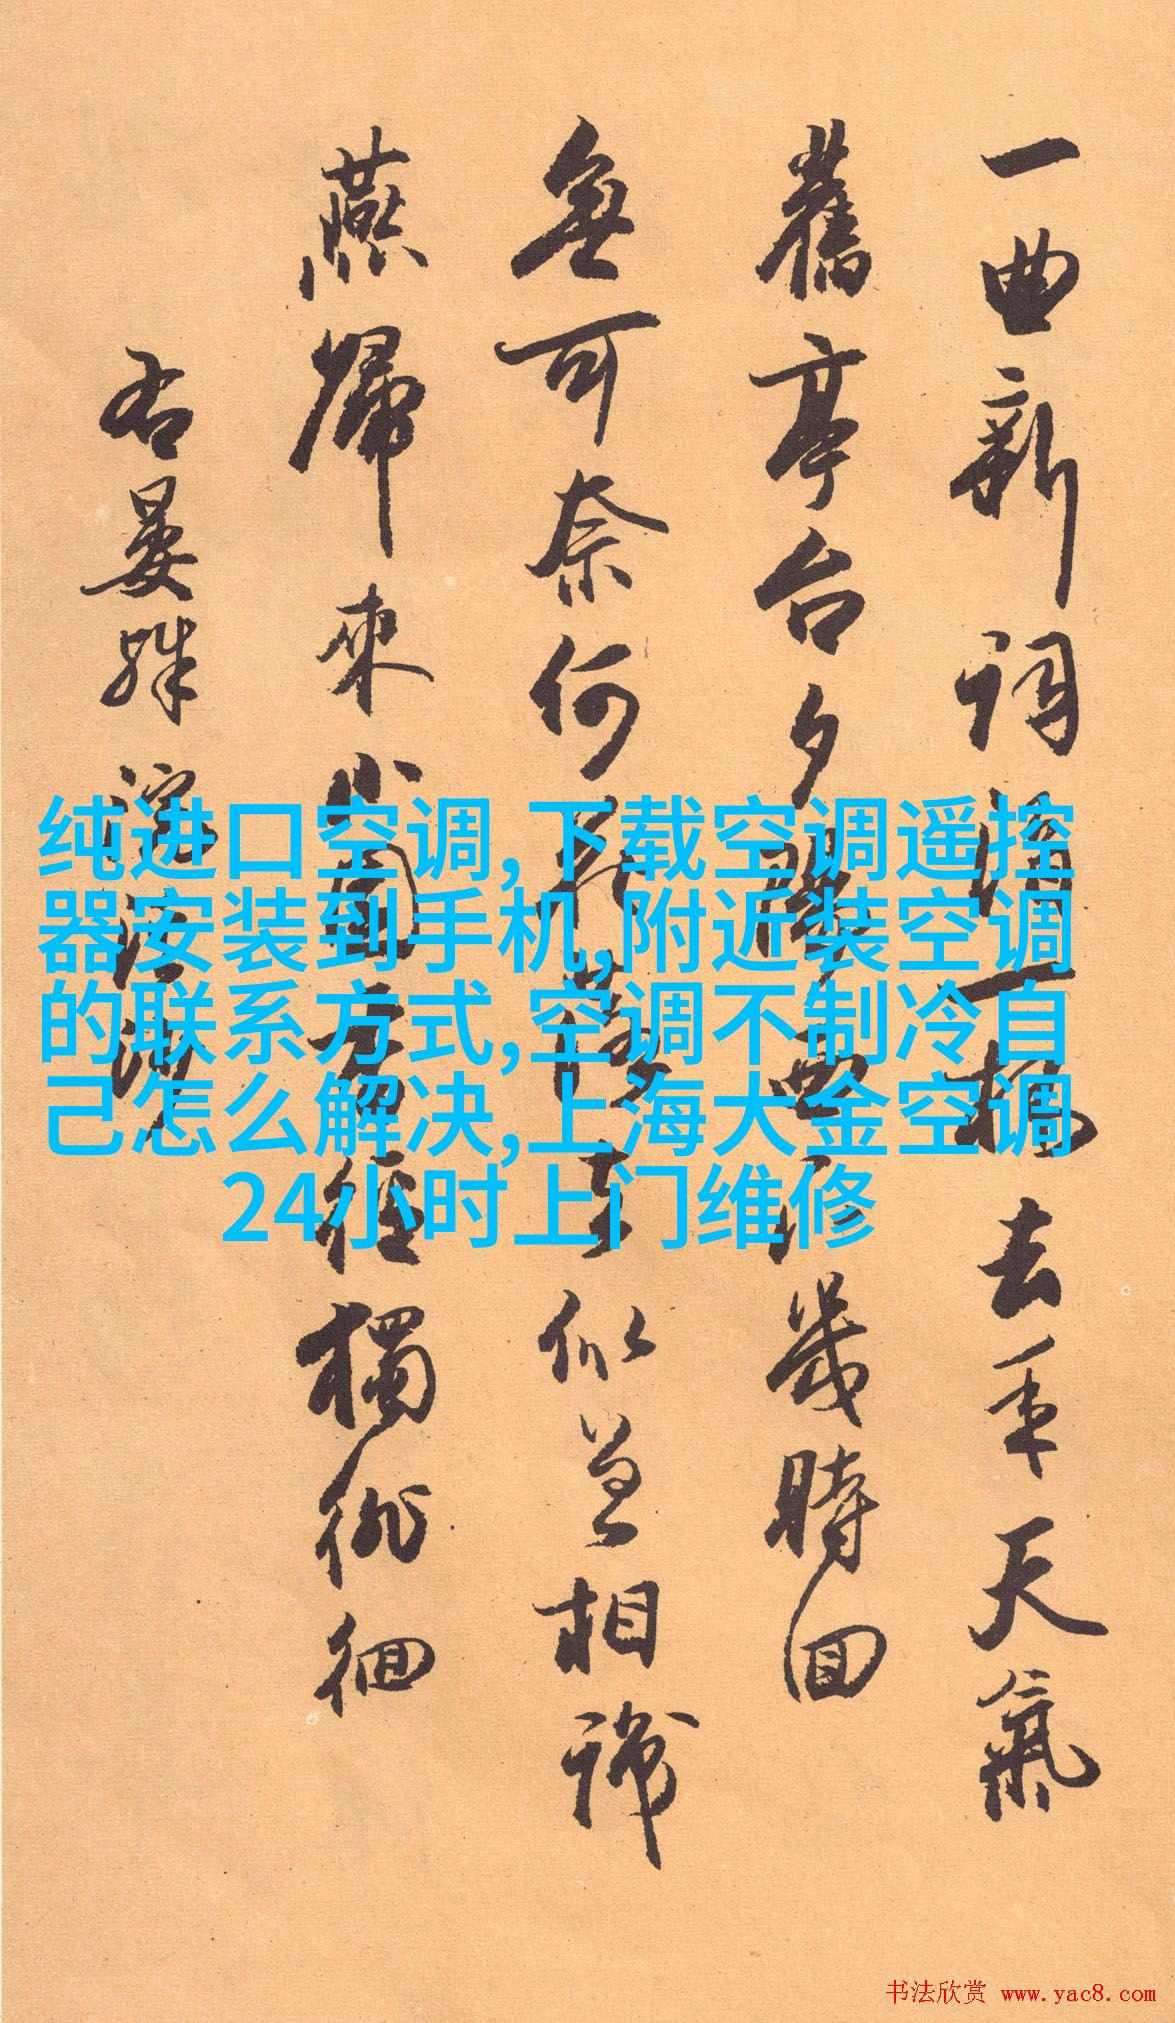 一曲新詞酒一杯去年天氣
舊亭台夕陽西下幾時回
無可奈何花落去似曾相識
燕歸來小園香徑獨徘徊
右晏殊浣溪沙
纯进口空调,下载空调遥控
器安装到手机,附近装空调
的联系方式,空调不制冷自
己怎么解决,上海大金空调
24小时上门维修
书法欣赏 www.yac8.com